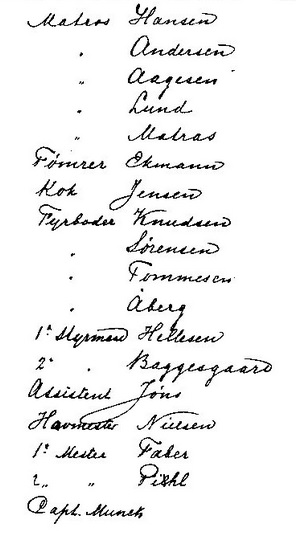 Matros Hansen
" Andersen
" Aagesen
" Lund
" Matras
Tømrer Ekmann
Kok Jensen
Fyrbøder Knudsen
" Sørensen
" Tommesen
" Åberg
1ste Styrmand Hellesen
2" " Baggesgaard
Assistent Jóns
Hovmester Nielsen
1ste Mester Faber
2" " Pihl
Capt. Munck